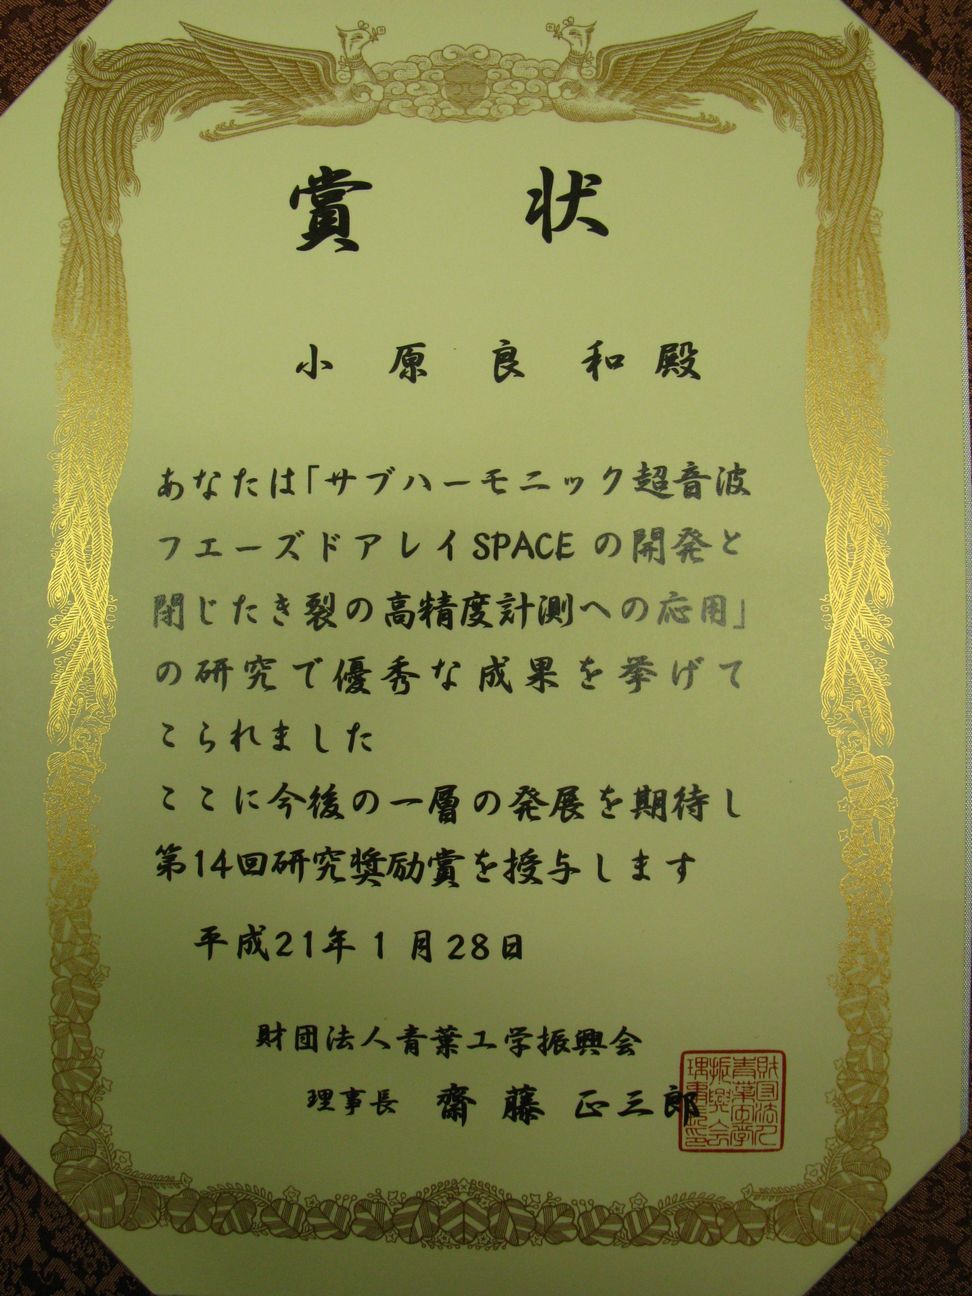 賞状
小原良和殿
あなたは「サブハーモニック超音波
フエーズドアレイSPACEの開発と
閉じたき裂の高精度計測への応用」
の研究で優秀な成果を挙げて
こられました
ここに今後の一層の発展を期待し
第14回研究奨励賞を授与します
平成21年1月28日
財団法人青葉工学振興会
理事長 齋藤正三郎
財団法人
青葉工学
振興会
理事長印